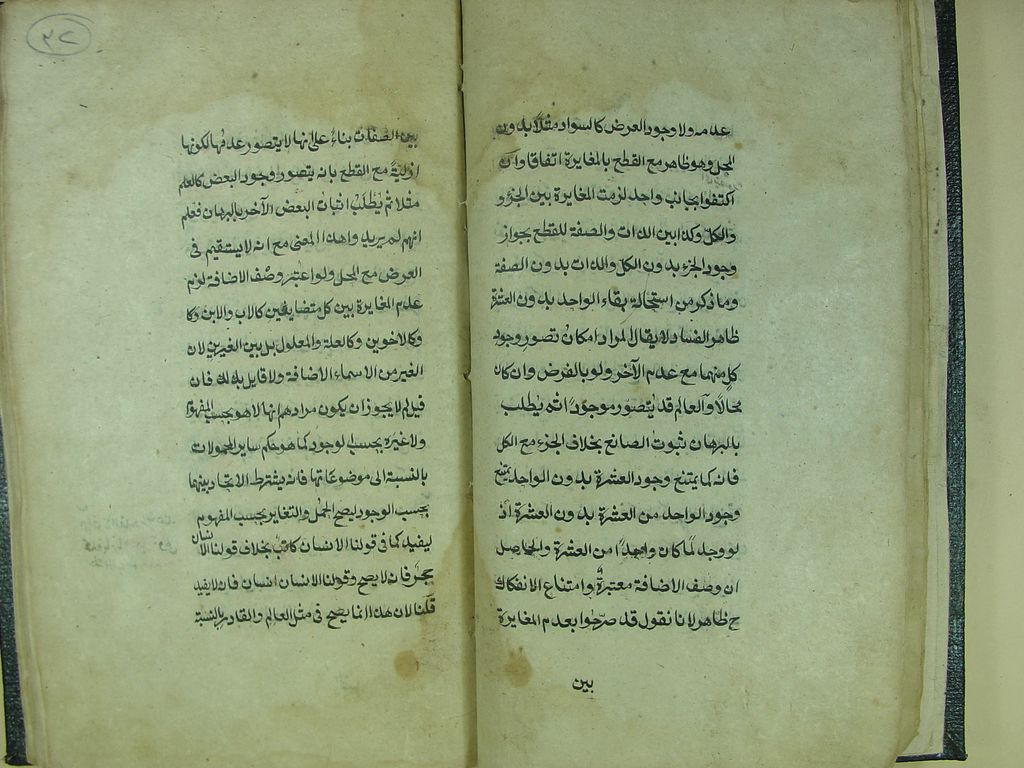 عدمه ولا وجود العرض كالسواد مثلا بدون
المحل وهو ظاهر مع القطع بالمغايرة اتفاقا وان
اكتفوا بجانب واحد لزمت المغايرة بين الجزؤ و
والكل وكذا بين الذات والصفة للقطع بجواز
وجود الجزء بدون الكل والذات بدون الصفة
وما ذكر من استحالة بقاء الواحد بدون العشرة
ظاهر الفساد لا يقال المراد امكان تصور وجود
كل منهما مع عدم الآخر ولو بالفرض وان كان
محالا والعالم قد يتصور موجودا ثم يطلب
بالبرهان ثبوت الصانع بخلاف الجزء مع الكل
فانه كما يمتنع وجود العشرة بدون الواحد يمتنع
وجود الواحد من العشرة بدون العشرة اذ
لو وجد لما كان واحدا من العشرة والحاصل
ان وصف الاضافة معتبرة وامتناع الانفكاك
ح ظاهر لانا نقول قد صرحوا بعدم المغايرة
بين
٣٢
بين الصفات بناء على انها لا يتصور عدمها لكونها
ازلية مع القطع بانه يتصور وجود البعض كالعلم
مثلا ثم يطلب اثبات البعض الآخر بالبرهان فعلم
انهم لم يريدوا هذا المعنى مع انه لا يستقيم في
العرض مع المحل ولو اعتبر وصف الاضافة لزم
عدم المغايرة بين كل متضايفين كالاب والابن وكا
وكالاخوين وكالعلة والمعلول بل بين الغيرين لان
الغير من الاسماء الاضافة ولا قايل بذلك فان
قيل لم لا يجوز ان يكون مرادهم انها لا هو بحسب المفهوم
ولا غيره بحسب الوجود كما هو حكم ساير المحمولات
بالنسبة الى موضوعاتها فانه يشترط الاتحاد بينهما
بحسب الوجود ليصح الحمل والتغاير بحسب المفهوم
ليفيد كما في قولنا الانسان كاتب بخلاف قولنا الانسان
حجر فانه لا يصح وقولنا الانسان انسان فانه لا يفيد
قلنا لان هذا انما يصح في مثل العالم والقادر بالنسبة